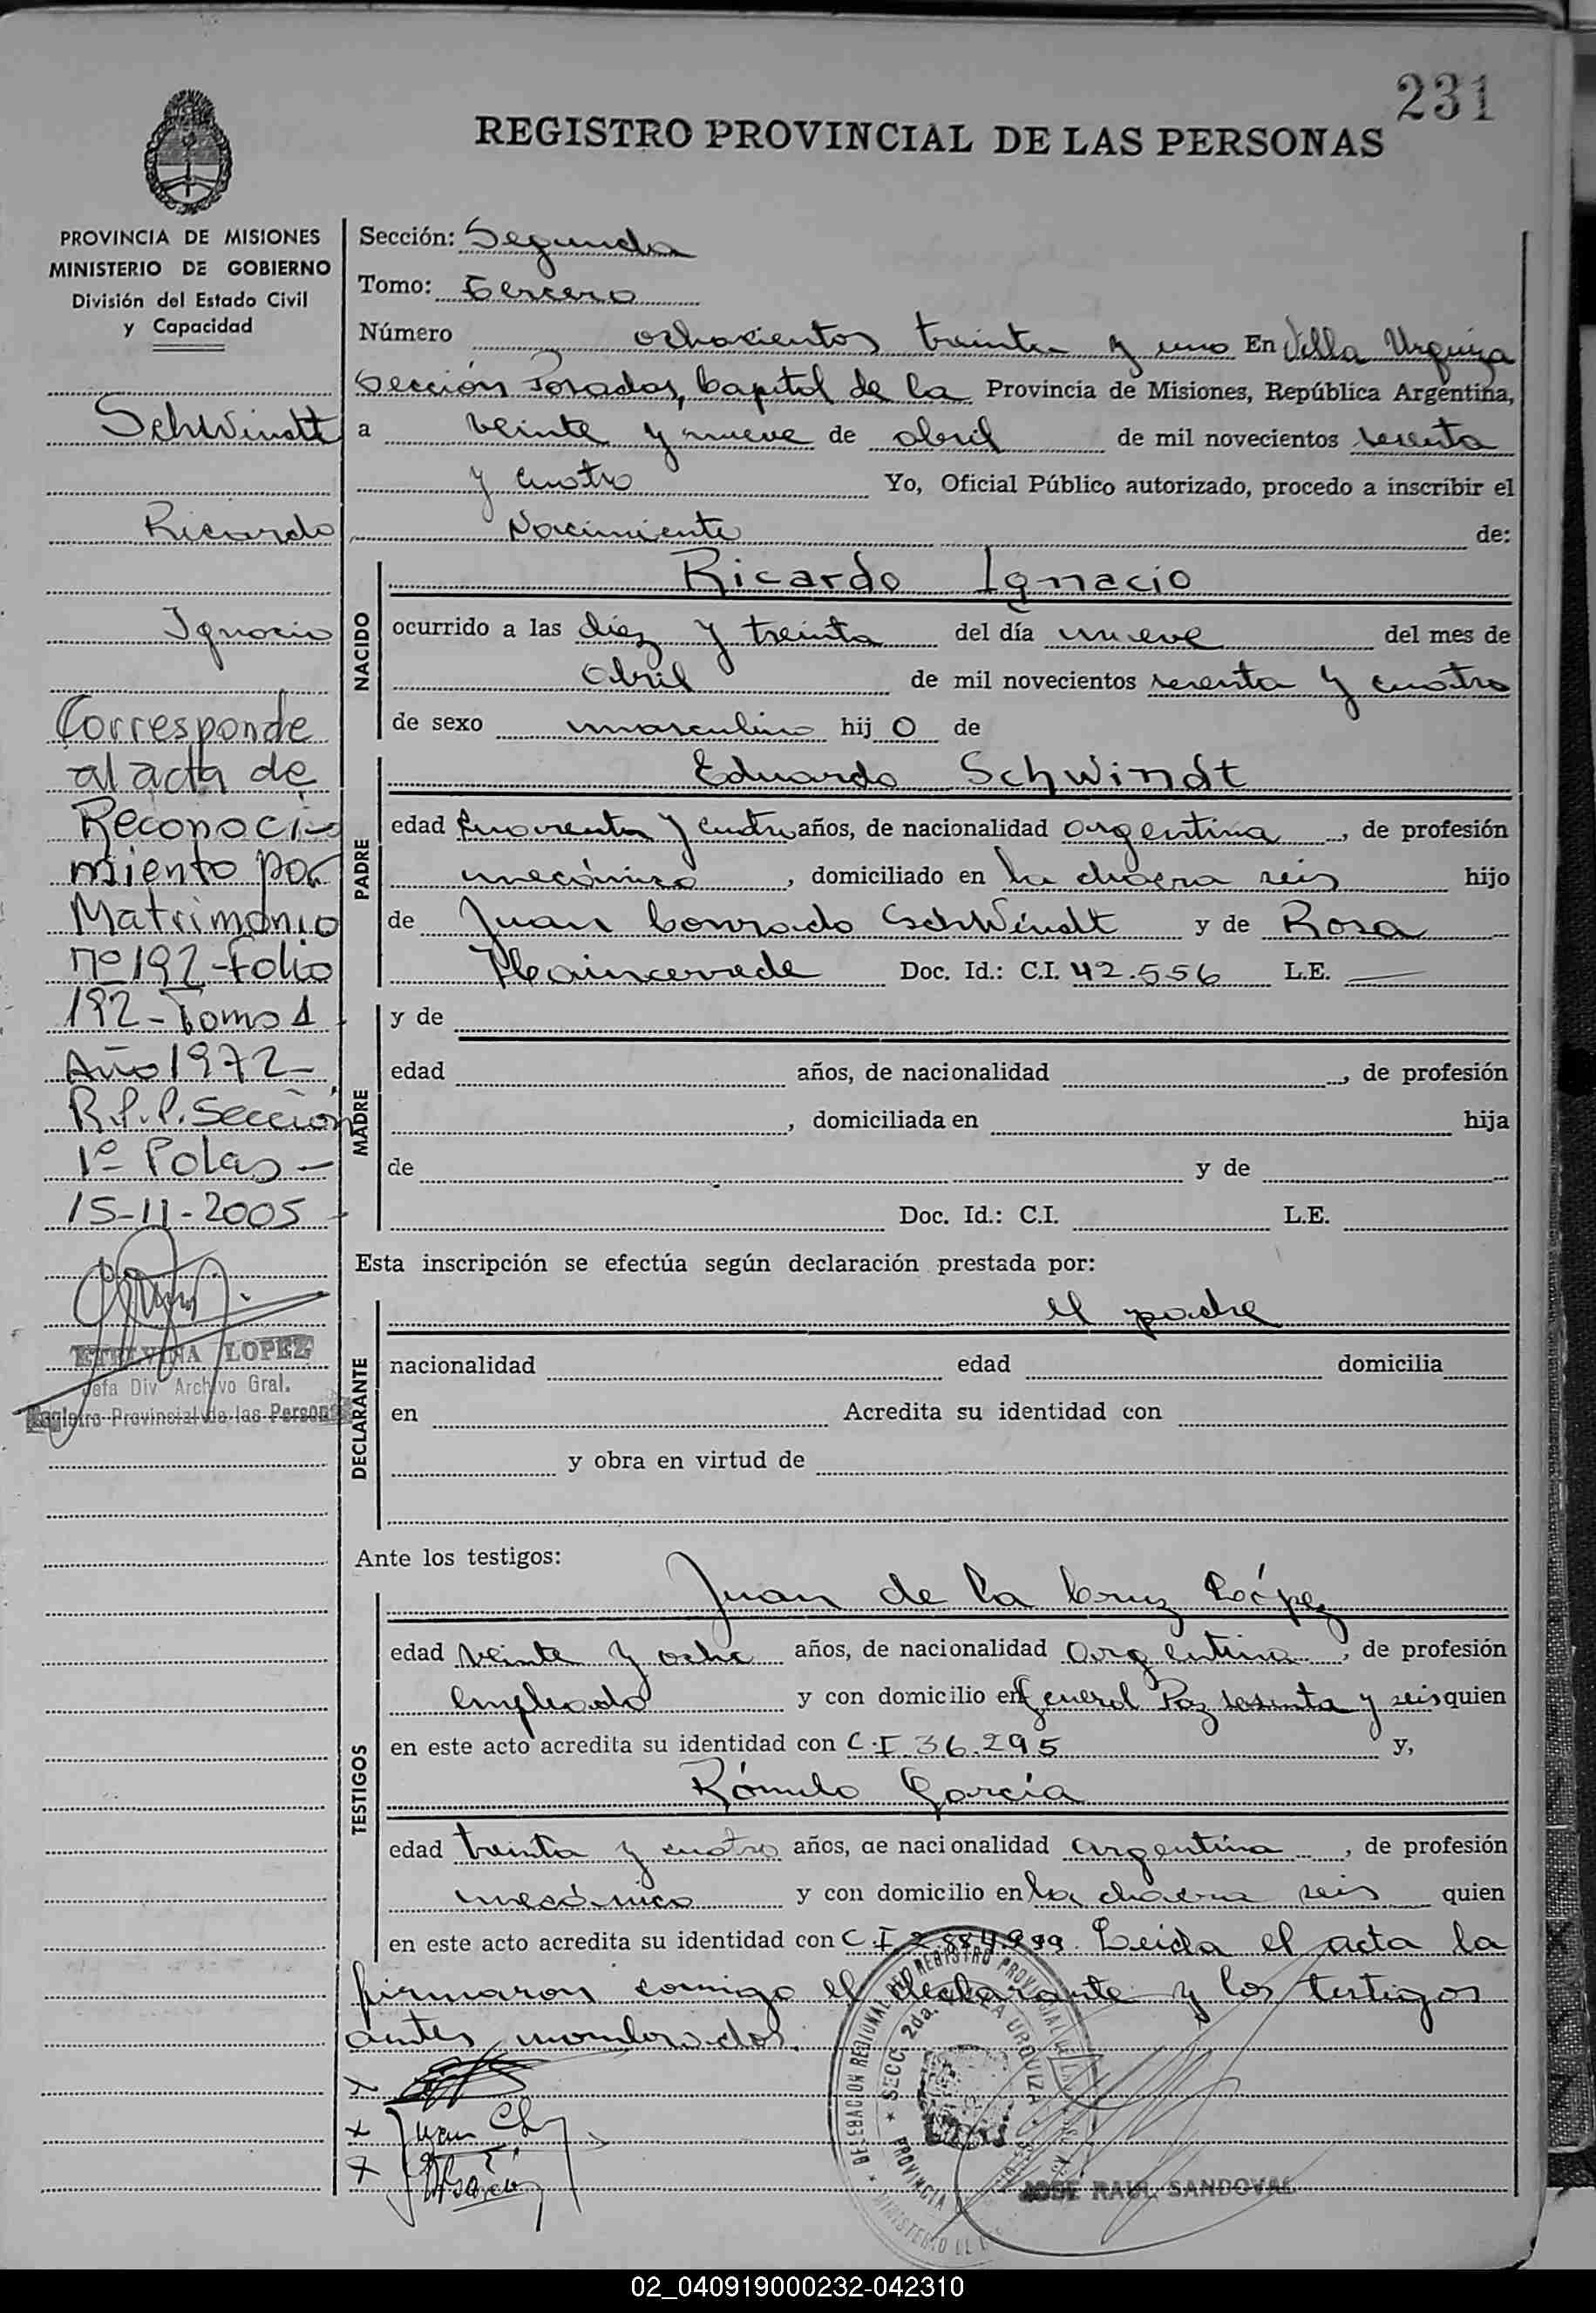 231
REGISTRO PROVINCIAL DE LAS PERSONAS
PROVINCIA DE MISIONES
MINISTERIO DE GOBIERNO
División del Estado Civil
y Capacidad
Schwindt
Ricardo
Ignacio
Corresponde
al acta de
Reconoci-
miento por
Matrimonio
nº 192-Folio
192-Tomo 1
Año 1972-
R.P.P. Sección
1º Pdas-
15-11-2005
ETELVINA LOPEZ
Jefa Div Archivo Gral.
Registro Provincial de las Personas
Sección: Segunda
Tomo: Tercero
Número ochocientos treinta y uno En Villa Urquiza
Sección Posadas, Capital de la Provincia de Misiones, República Argentina,
a veinte y nueve de abril de mil novecientos
y cuatro Yo, Oficial Público autorizado, procedo a inscribir el
Nacimiento de:
NACIDO
Ricardo Ignacio
ocurrido a las diez y treinta del día nueve del mes de
Abril de mil novecientos y cuatro
de sexo masculino hij o de
PADRE
Eduardo Schwindt
edad cuarenta y cuatro años, de nacionalidad argentina, de profesión
mecánico, domiciliado en la chacra seis hijo
de Juan Conrado Schwindt y de Rosa
Doc. Id.: C.I. 42.556 L.E. —
MADRE
y de
edad años, de nacionalidad , de profesión
, domiciliada en hija
de y de
Doc. Id.: C.I. L.E.
Esta inscripción se efectúa según declaración prestada por:
DECLARANTE
el padre
nacionalidad edad domicilia
en Acredita su identidad con
y obra en virtud de
Ante los testigos:
TESTIGOS
Juan de la Cruz López
edad veinte y ocho años, de nacionalidad Argentina, de profesión
empleado y con domicilio en General Paz sesenta y seis quien
en este acto acredita su identidad con C.I. 36.295 y,
Rómulo García
edad treinta y cuatro años, de nacionalidad argentina, de profesión
mecánico y con domicilio en la chacra seis quien
en este acto acredita su identidad con C.I. Leida el acta la
firmaron comigo el declarante y los testigos
antes nombrados.
DELEGACION REGIONAL DEL REGISTRO PROVINCIAL DE LAS
SECC. 2da. VILLA URQUIZA
PROVINCIA
MINISTERIO DE
JOSE RAUL SANDOVAL
02_040919000232-042310